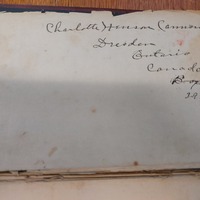 Charlotte Hanson Cannon
Dresden
Ontario
Canada